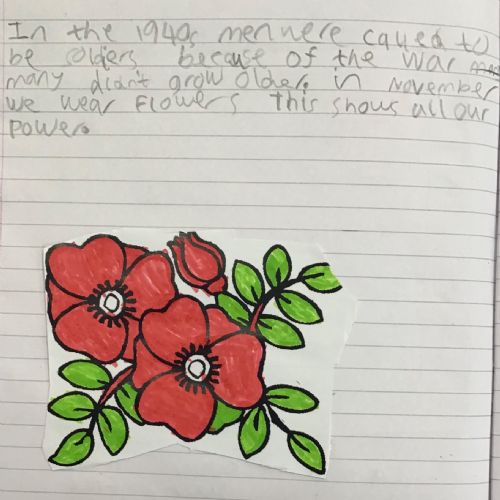 In the 1940s men were called to
be Solders because of the war
many didn't grow older. in November
we wear Flowers This shows all our
Power.